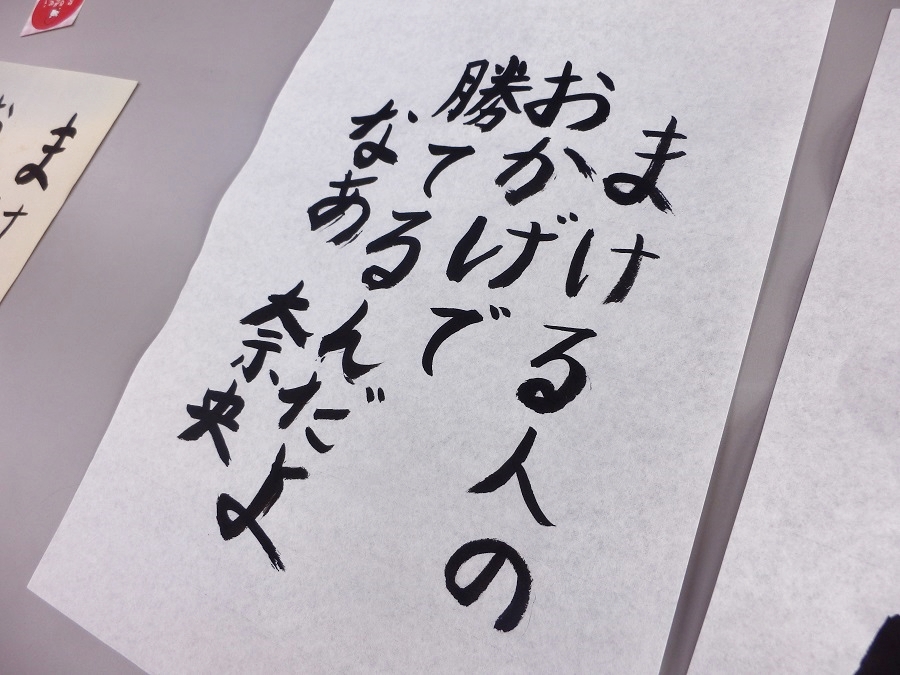 まける人の
おかげで
勝てるんだよ
なあ
奈央
ま
け
お